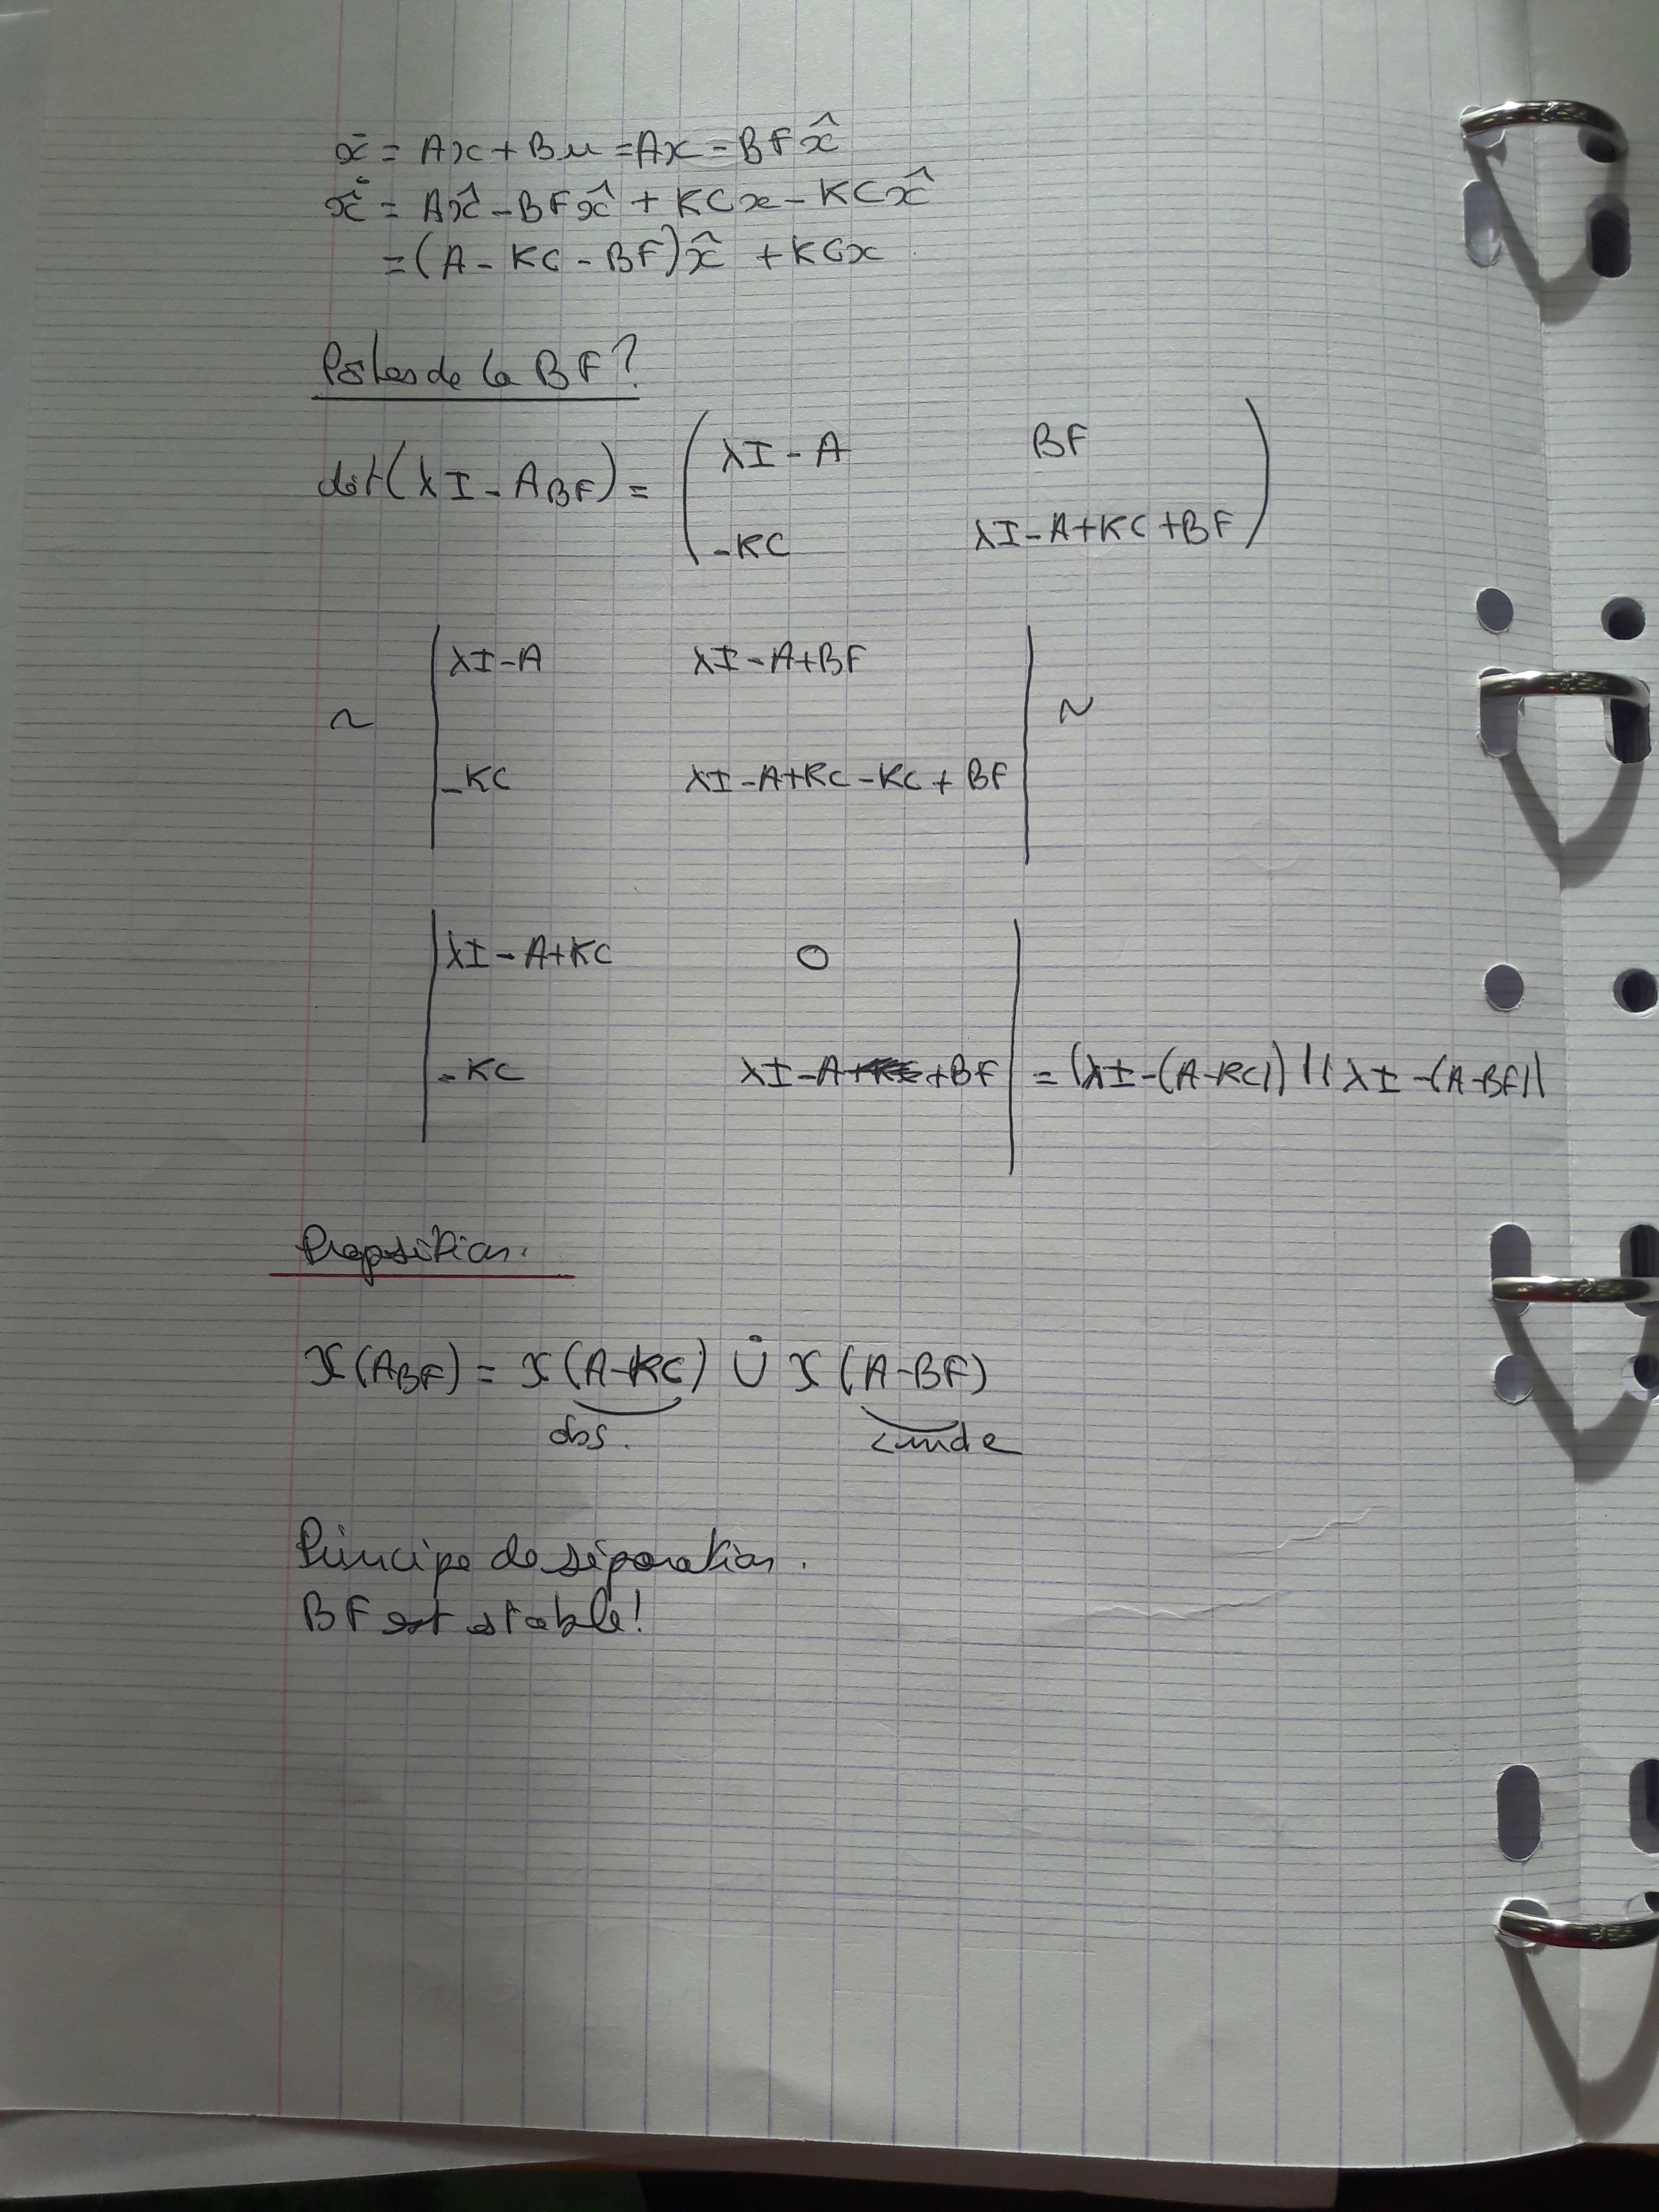 ẋ = Ax + Bu = Ax - BFx̂
x̂̇ = Ax̂ - BFx̂ + KCx - KCx̂
= (A - KC - BF)x̂ + KCx
Pôles de la BF?
dét(λI - A_BF) = ( λI - A BF
-KC λI - A + KC + BF )
~ | λI - A λI - A + BF | ~
| -KC λI - A + KC - KC + BF |
| λI - A + KC 0 |
| -KC λI - A + BF | = |λI - (A - KC)| |λI - (A - BF)|
Proposition.
𝒳(A_BF) = 𝒳(A - KC) ∪̇ 𝒳(A - BF)
obs. cmde
Principe de séparation.
BF est stable!